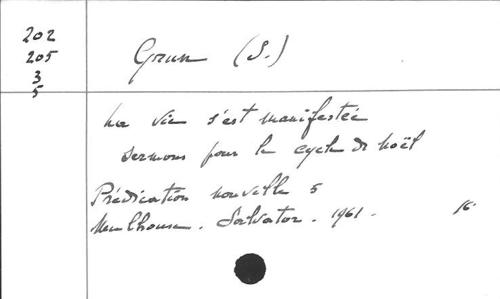 202
205
3
5
Grun (S.)
La vie s'est manifestée
sermons pour le cycle de Noël
Prédication nouvelle 5
Mulhouse. Salvator. 1961. 16